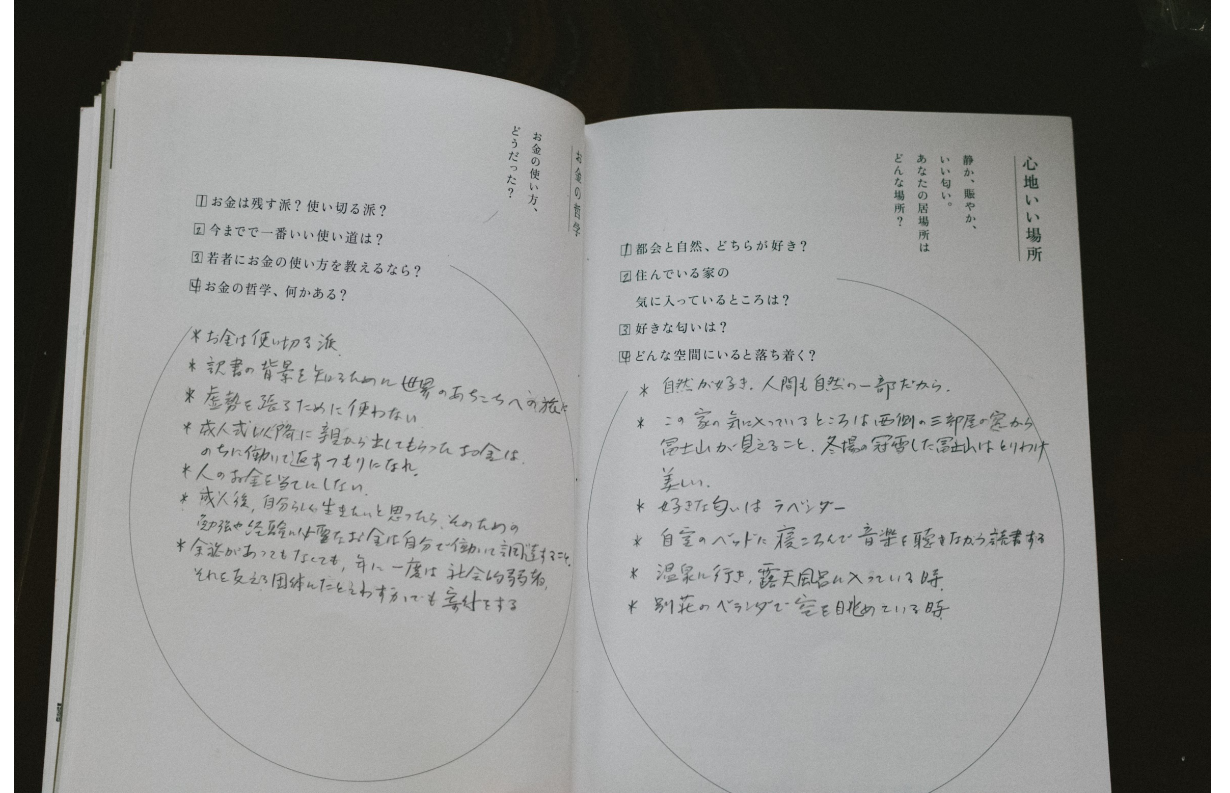 お金の哲学
お金の使い方、
どうだった？
1 お金は残す派？使い切る派？
2 今までで一番いい使い道は？
3 若者にお金の使い方を教えるなら？
4 お金の哲学、何かある？
* お金は使い切る派
* 訳書の背景を知るために世界のあちこちへの旅に
* 虚勢を張るために使わない
* 成人式以降に親から出してもらったお金は、
のちに働いて返すつもりになれ。
* 人のお金を当てにしない。
* 成人後、自分らしく生きたいと思ったら、そのための
勉強や経験に必要なお金は自分で働いて調達すること。
* 余裕があってもなくても、年に一度は社会的弱者、
それを支える団体にたとえわずかでも寄付をする
心地いい場所
静か、賑やか、
いい匂い。
あなたの居場所は
どんな場所？
1 都会と自然、どちらが好き？
2 住んでいる家の
気に入っているところは？
3 好きな匂いは？
4 どんな空間にいると落ち着く？
* 自然が好き。人間も自然の一部だから。
* この家の気に入っているところは西側の三部屋の窓から
冨士山が見えること。冬場の冠雪した冨士山はとりわけ
美しい。
* 好きな匂いはラベンダー
* 自室のベッドに寝ころんで音楽を聴きながら読書する
* 温泉に行き、露天風呂に入っている時
* 別荘のベランダで空を眺めている時